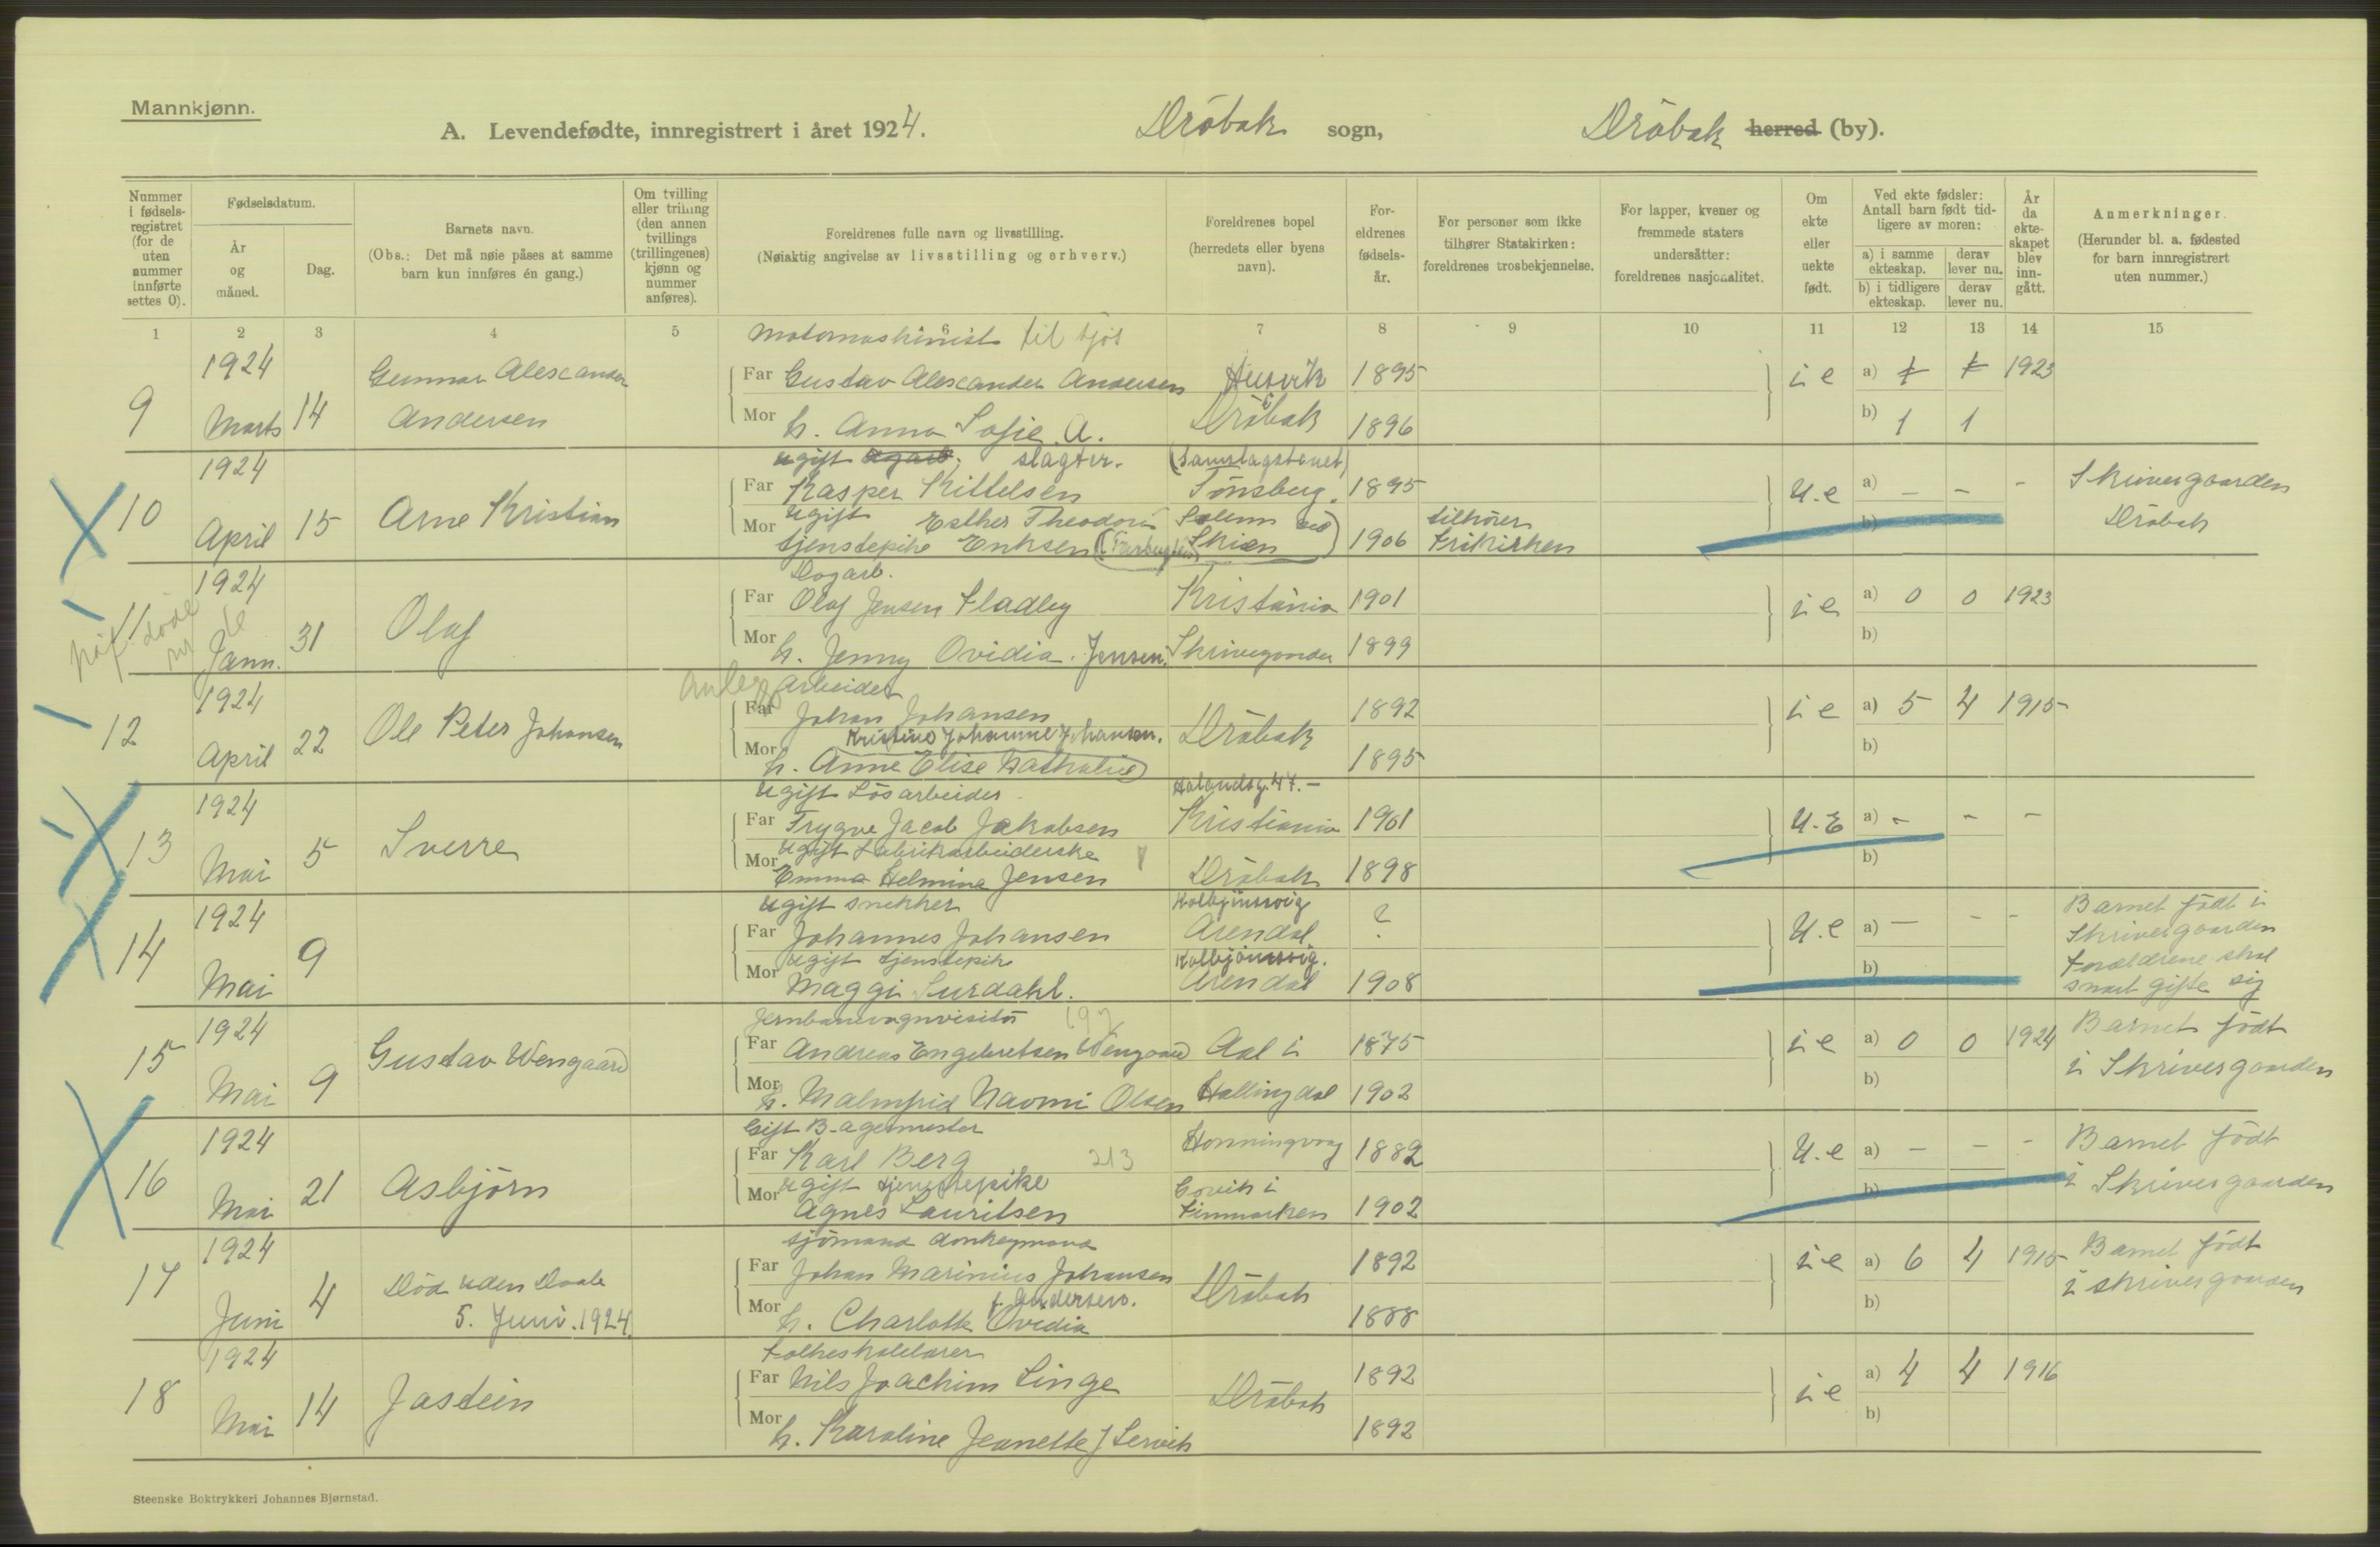 Mannkjønn.
A. Levendefødte, innregistrert i året 1924. Dröbak sogn, Dröbak herred (by).
Nummer i fødsels-registret (for de uten nummer innførte settes 0).
Fødselsdatum.
År og måned.
Dag.
Barnets navn.
(Obs.: Det må nøie påses at samme barn kun innføres én gang.)
Om tvilling eller trilling (den annen tvillings (trillingenes) kjønn og nummer anføres).
Foreldrenes fulle navn og livsstilling.
(Nøiaktig angivelse av livsstilling og erhverv.)
Foreldrenes bopel
(herredets eller byens navn).
For-eldrenes fødsels-år.
For personer som ikke tilhører Statskirken: foreldrenes trosbekjennelse.
For lapper, kvener og fremmede staters undersåtter: foreldrenes nasjonalitet.
Om ekte eller uekte født.
Ved ekte fødsler: Antall barn født tid-ligere av moren:
a) i samme ekteskap.
derav lever nu.
b) i tidligere ekteskap.
derav lever nu.
År da ekte-skapet blev inn-gått.
Anmerkninger.
(Herunder bl. a. fødested for barn innregistrert uten nummer.)
1 2 3 4 5 6 7 8 9 10 11 12 13 14 15
Motormaskinist til sjøs
9 1924 Marts 14 Gunnar Alexander Andersen
Far Gustav Alexander Andersen Husvik 1895 i e a) 1 1 1923
Mor h. Anna Sofie A. Dröbak 1896 b) 1 1
ugift slagter.
10 1924 April 15 Arne Kristian
Far Kasper Kittelsen Tönsberg. 1895 U.e a) – – – Skrivergaarden
Mor ugift Esther Theodora Solum ved tilhörer b) Dröbak
tjenstepike Eriksen Skien 1906 Frikirken
Dagarb.
11 1924 Jann. 31 Olaf
Far Olaf Jensen Fladby Kristiania 1901 i e a) 0 0 1923
Mor h. Jenny Ovidia. Jensen. Skrivegaarden 1899 b)
Arbeider
12 1924 April 22 Ole Peter Johansen
Far Johan Johansen Dröbak 1892 i e a) 5 4 1915
Kristine Johanne Johansen.
Mor h. Anne Elise Nathalie 1895 b)
ugift Lösarbeider
13 1924 Mai 5 Sverre
Far Trygve Jacob Jakobsen Kristiania 1901 U.E a) – – –
Mor ugift Fabrikarbeiderske b)
Emma Helmine Jensen Dröbak 1898
ugift snekker Kolbjörnsvig
14 1924 Mai 9
Far Johannes Johansen Arendal ? U.e a) – – – Barnet født i
Skrivergaarden
Mor ugift tjenstepike Kolbjörnsvig. b) Foreldrene skal
Maggi Surdahl. Arendal 1908 snart gifte sig
Jernbanevognvisitör 197
15 1924 Mai 9 Gustav Wengaard
Far Andreas Engebretsen Wengaard Aal i 1875 i e a) 0 0 1924 Barnet födt
Mor h. Malmfrid Naomi Olsen Hallingdal 1902 b) i Skrivergaarden
Gift Bagermester
16 1924 Mai 21 Asbjörn
Far Karl Berg 213 Honningvaag 1882 U.e a) – – – Barnet födt
Mor ugift tjenestepike b) i Skrivergaarden
Agnes Lauritsen Finmarken 1902
Sjömand donkeymand
17 1924 Juni 4 Död uden Daab
5. Juni. 1924.
Far Johan Marinius Johansen Dröbak 1892 i e a) 6 4 1915 Barnet födt
f. Andersen.
Mor h. Charlotte Ovidia 1888 b) i skrivergaarden
Folkeskolelærer
18 1924 Mai 14 Jastein
Far Nils Joachim Linge Dröbak 1892 i e a) 4 4 1916
Mor h. Karoline Jeanette f Lervik 1892 b)
Steenske Boktrykkeri Johannes Bjørnstad.